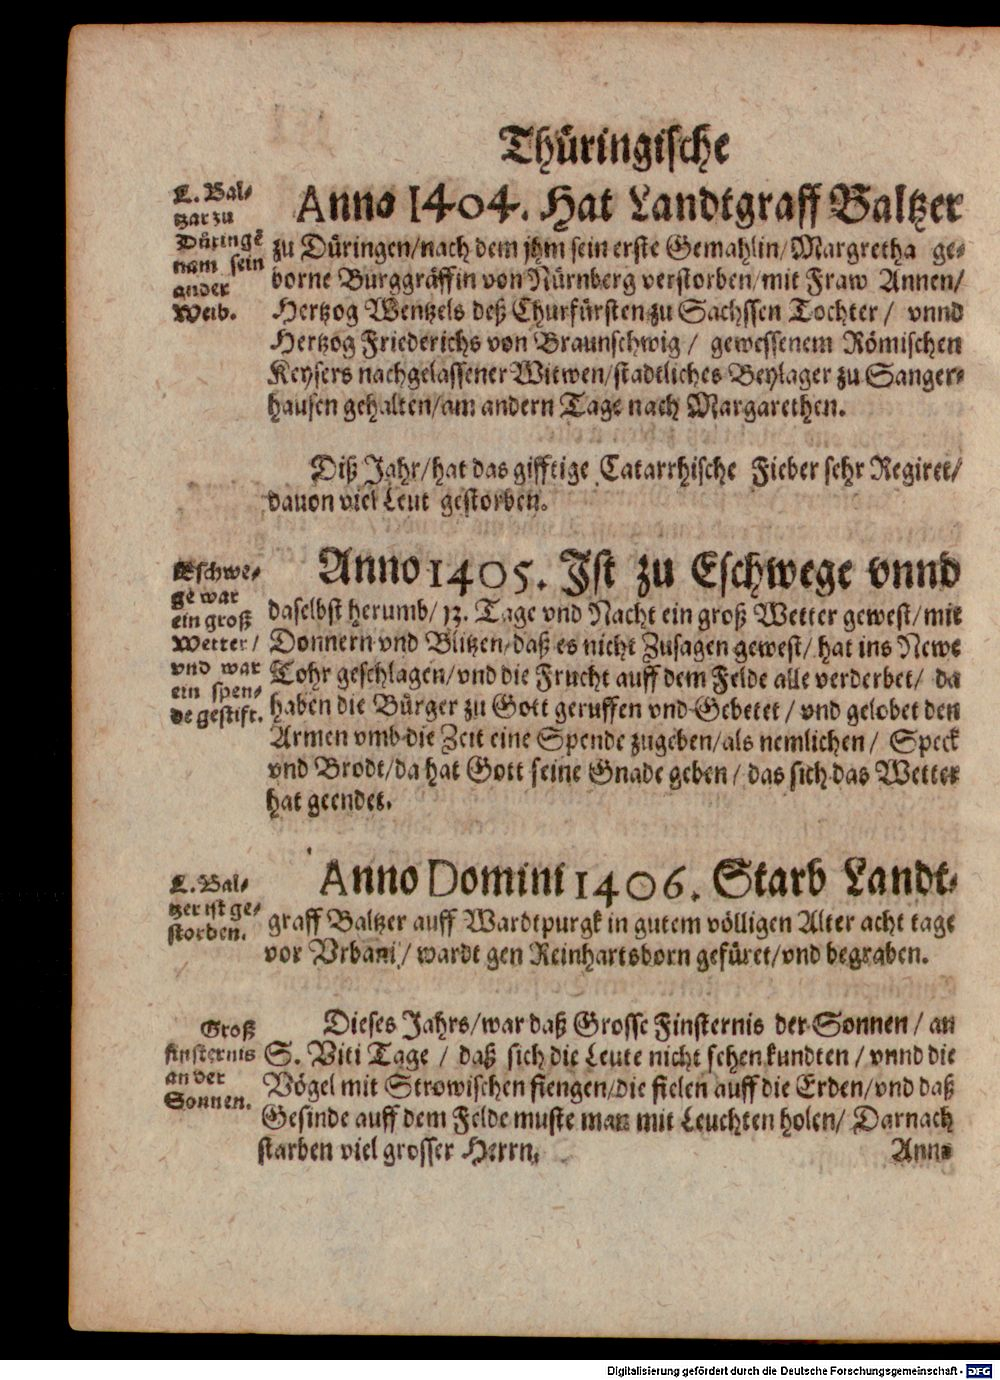 Thüringische
L. Bal-
tzar zu
Düringē
nam sein
ander
Weib.
Anno 1404. Hat Landtgraff Baltzer
zu Düringen/nach dem jhm sein erste Gemahlin/Margretha ge-
borne Burggräffin von Nürnberg verstorben/mit Fraw Annen/
Hertzog Wentzels deß Churfürsten zu Sachssen Tochter / vnnd
Hertzog Friederichs von Braunschwig / gewessenem Römischen
Keysers nachgelassener Witwen/stadtliches Beylager zu Sanger-
hausen gehalten/am andern Tage nach Margarethen.
Diß Jahr/hat das gifftige Catarrhische Fieber sehr Regiret/
dauon viel Leut gestorben.
Eschwe-
ge war
ein groß
Wetter/
vnd war
ein spen-
de gestift.
Anno 1405. Ist zu Eschwege vnnd
daselbst herumb/ 13. Tage vnd Nacht ein groß Wetter gewest/mit
Donnern vnd Blitzen/daß es nicht Zusagen gewest/ hat ins Newe
Tohr geschlagen/vnd die Frucht auff dem Felde alle verderbet/ da
haben die Bürger zu Gott geruffen vnd Gebetet / vnd gelobet den
Armen vmb die Zeit eine Spende zugeben/als nemlichen / Speck
vnd Brodt/da hat Gott seine Gnade geben / das sich das Wetter
hat geendet.
L. Bal-
tzer ist ge-
storben.
Anno Domini 1406. Starb Landt-
graff Baltzer auff Wardtpurgk in gutem völligen Alter acht tage
vor Vrbani/ wardt gen Reinhartsborn gefüret/vnd begraben.
Groß
finsternis
an der
Sonnen.
Dieses Jahrs/war daß Grosse Finsternis der Sonnen / an
S. Viti Tage / daß sich die Leute nicht sehen kundten / vnnd die
Vögel mit Strowischen fiengen/die fielen auff die Erden/vnd daß
Gesinde auff dem Felde muste man mit Leuchten holen/ Darnach
starben viel grosser Herrn.
Anno
Digitalisierung gefördert durch die Deutsche Forschungsgemeinschaft - DFG